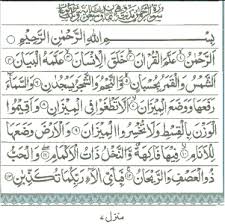 بِسْمِ اللهِ الرَّحْمٰنِ الرَّحِيْمِ
اَلرَّحْمٰنُ عَلَّمَ الْقُرْاٰنَ خَلَقَ الْاِنْسَانَ عَلَّمَهُ الْبَيَانَ
اَلشَّمْسُ وَالْقَمَرُ بِحُسْبَانٍ وَّالنَّجْمُ وَالشَّجَرُ يَسْجُدٰنِ وَالسَّمَآءَ
رَفَعَهَا وَوَضَعَ الْمِيْزَانَ اَلَّا تَطْغَوْا فِى الْمِيْزَانِ وَاَقِيْمُوا
الْوَزْنَ بِالْقِسْطِ وَلَا تُخْسِرُوا الْمِيْزَانَ وَالْاَرْضَ وَضَعَهَا
لِلْاَنَامِ فِيْهَا فَاكِهَةٌ وَّالنَّخْلُ ذَاتُ الْاَكْمَامِ وَالْحَبُّ
ذُو الْعَصْفِ وَالرَّيْحَانُ فَبِاَىِّ اٰلَآءِ رَبِّكُمَا تُكَذِّبٰنِ
منزل ٧